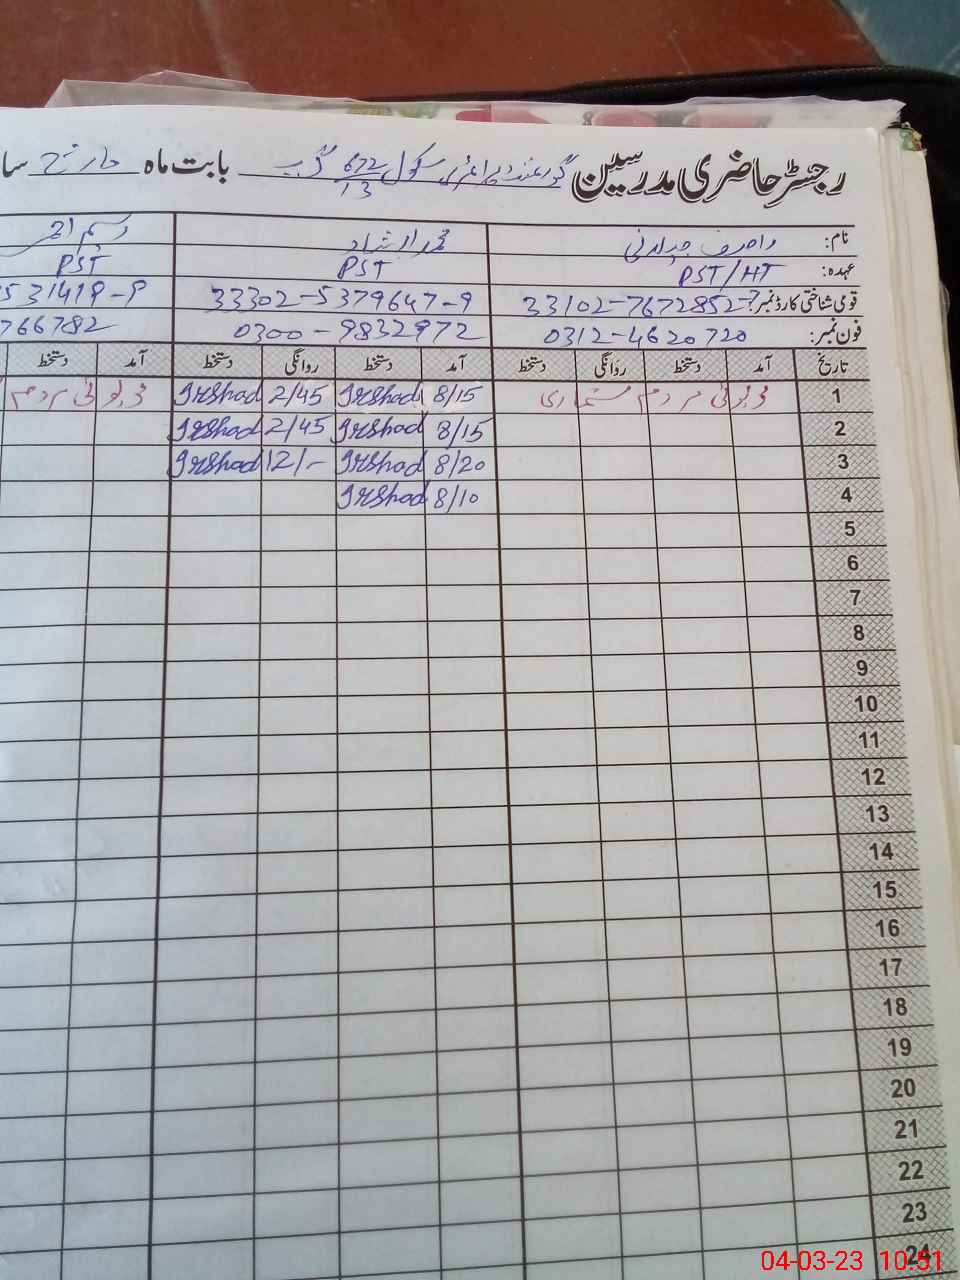 رجسٹر حاضری مدرسین گورنمنٹ پرائمری سکول 672/13 گ ب بابت ماہ مارچ سا
نام: محمد ارشاد
عہدہ: PST/HT PST PST
قومی شناختی کارڈ نمبر: 33102-7672852-7 33302-5379647-9 531419-9
فون نمبر: 0312-4620720 0300-9832972 766782
تاریخ آمد دستخط روانگی دستخط آمد دستخط روانگی دستخط آمد دستخط
1 ڈیوٹی مردم شماری 8/15 Irshad 2/45 Irshad ڈیوٹی مردم
2 8/15 Irshad 2/45 Irshad
3 8/20 Irshad 12/- Irshad
4 8/10 Irshad
5
6
7
8
9
10
11
12
13
14
15
16
17
18
19
20
21
22
23
24
04-03-23 10:51